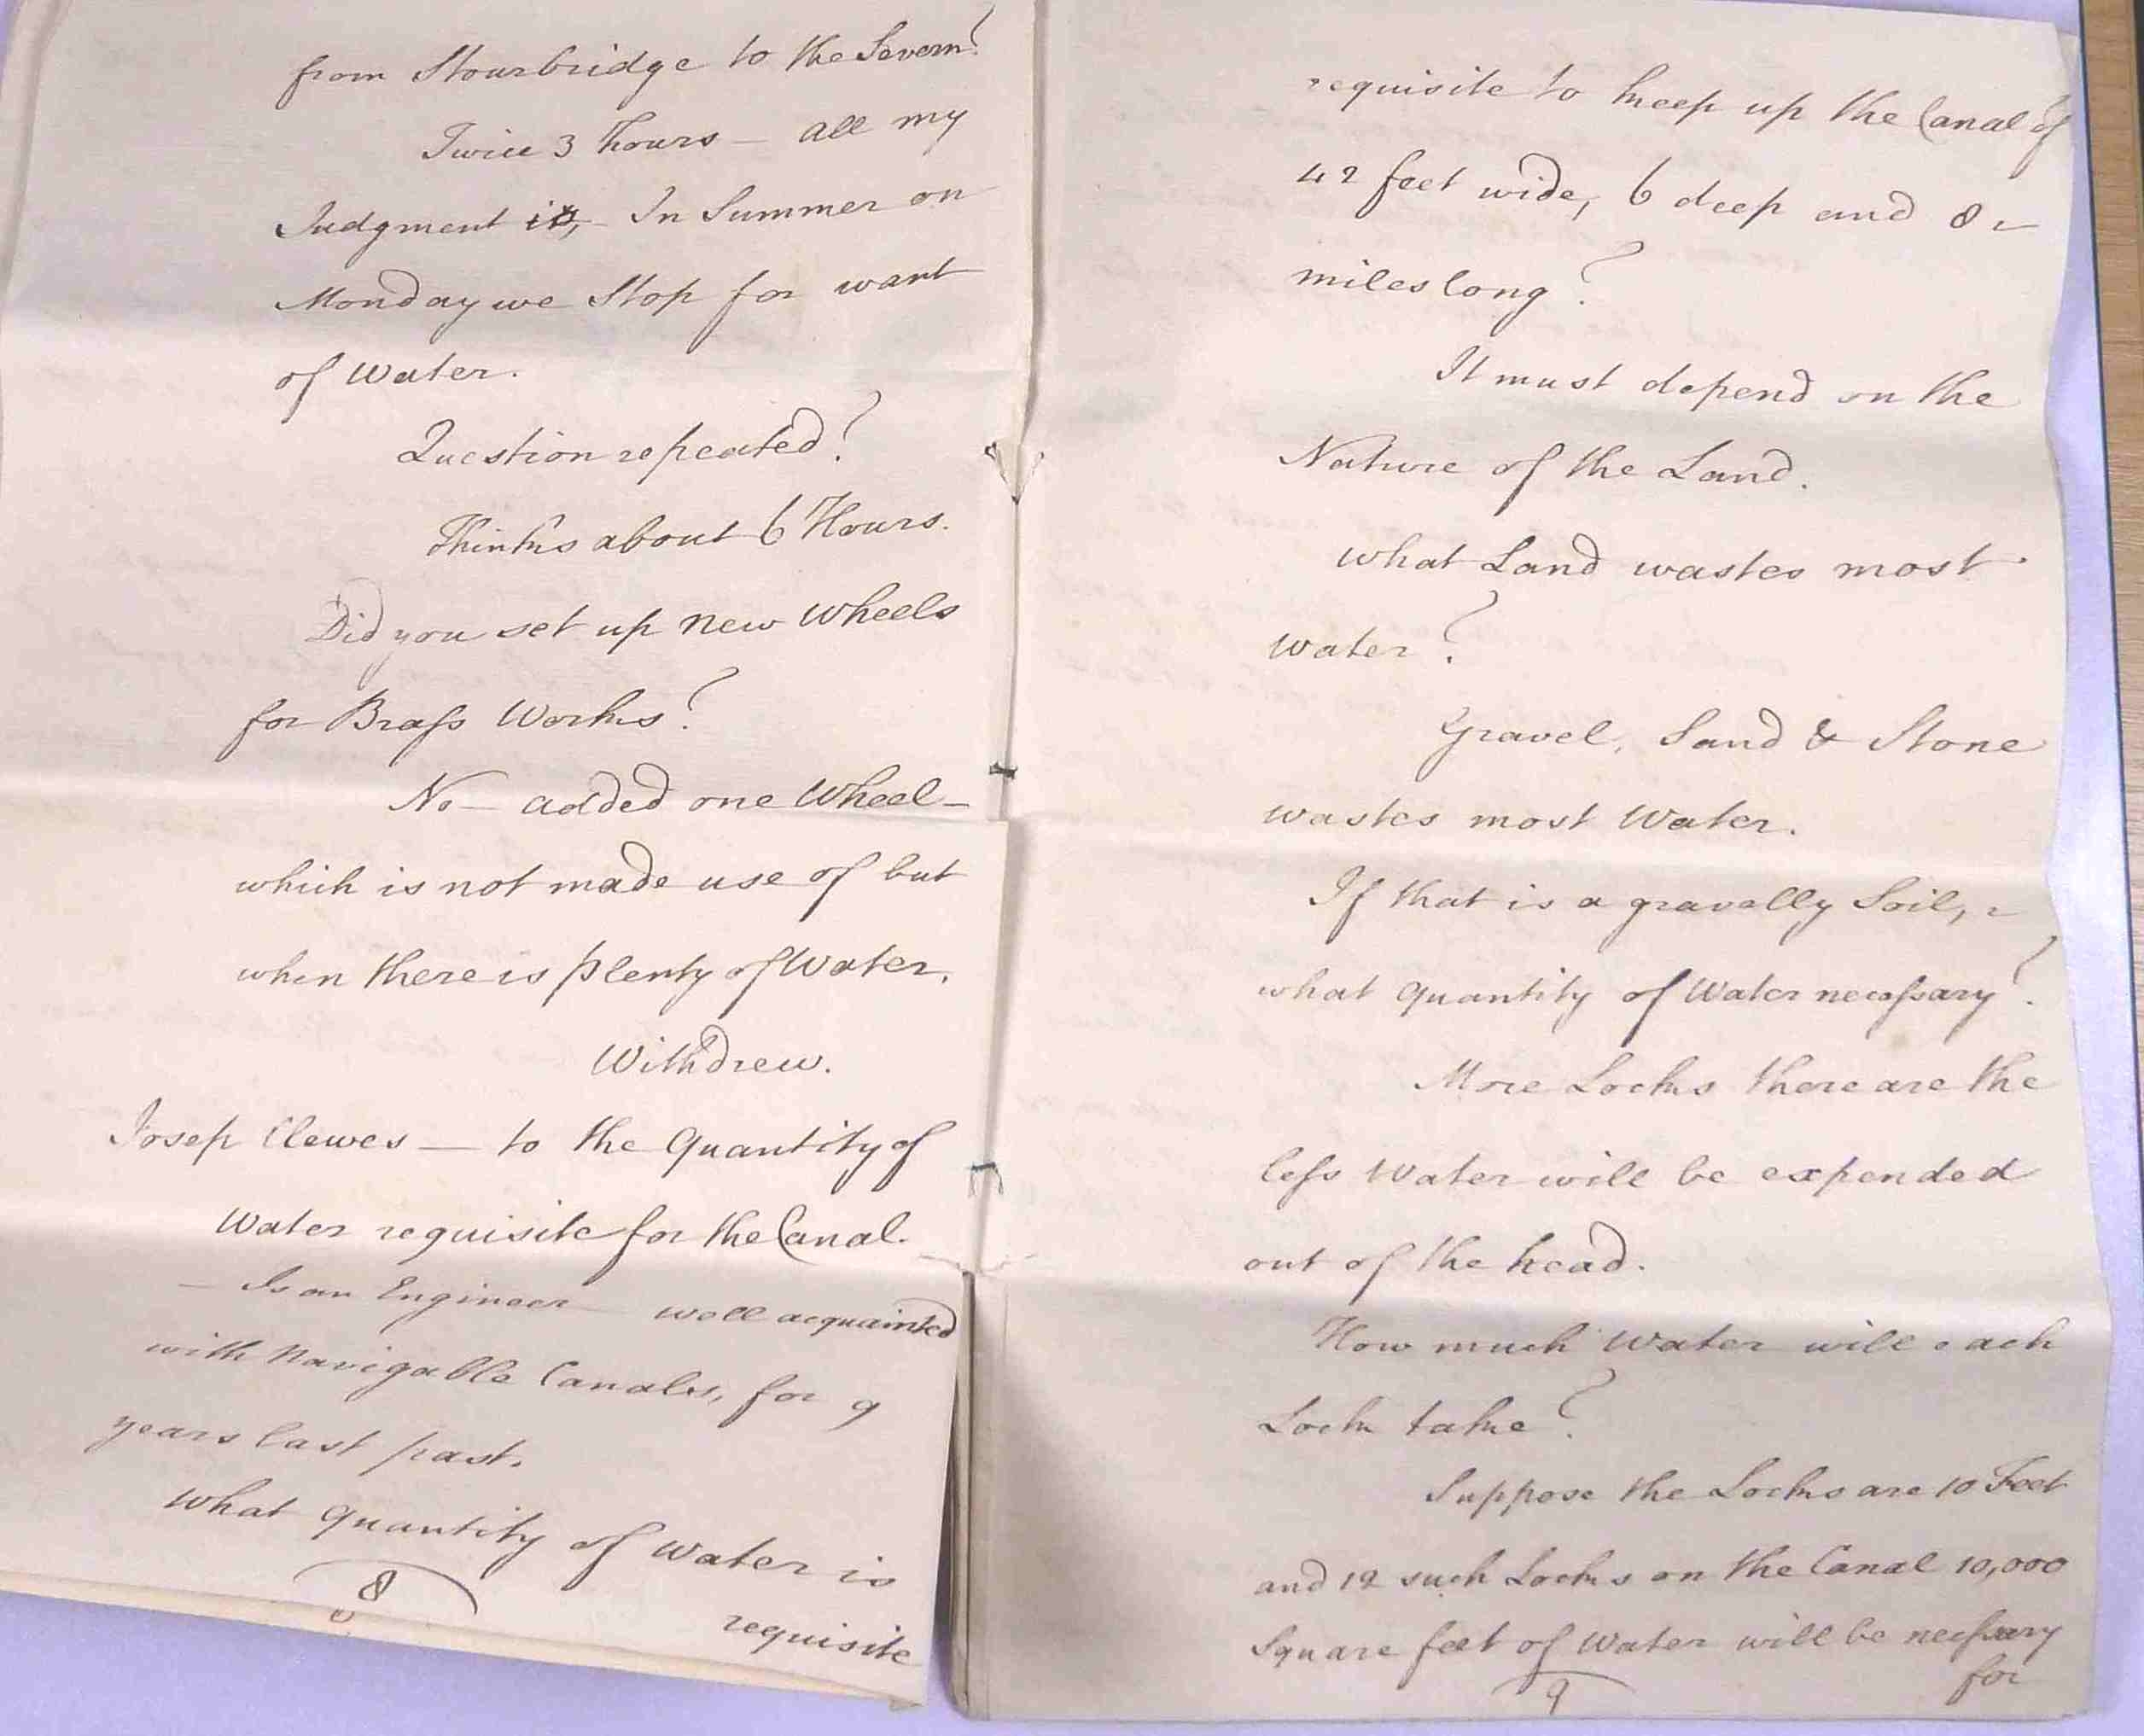 from Stourbridge to the Severn?
Twice 3 hours — all my
Judgment is, - In Summer on
Monday we Stop for want
of Water.
Question repeated?
Thinks about 6 Hours.
Did you set up new Wheels
for Brass Works?
No — added one Wheel —
which is not made use of but
when there is plenty of Water.
Withdrew.
Josep Clewes — to the Quantity of
Water requisite for the Canal.
— Is an Engineer — well acquainted
with Navigable Canals, for 9
years last past.
What quantity of Water is
8
requisite
requisite to keep up the Canal of
42 feet wide, 6 deep and 8
miles long?
It must depend on the
Nature of the Land.
What Land wastes most
Water?
Gravel, Sand & Stone
wastes most Water.
If that is a gravelly Soil,
what Quantity of Water necessary?
More Locks there are the
less Water will be expended
out of the head.
How much Water will each
Lock take?
Suppose the Locks are 10 Feet
and 12 such Locks on the Canal 10,000
Square feet of Water will be necessary
9
for